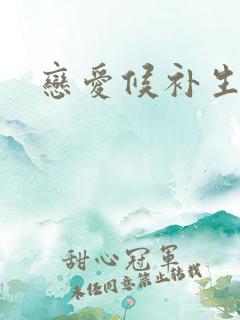 戀愛候补生
甜心冠軍
未经同意禁止转载